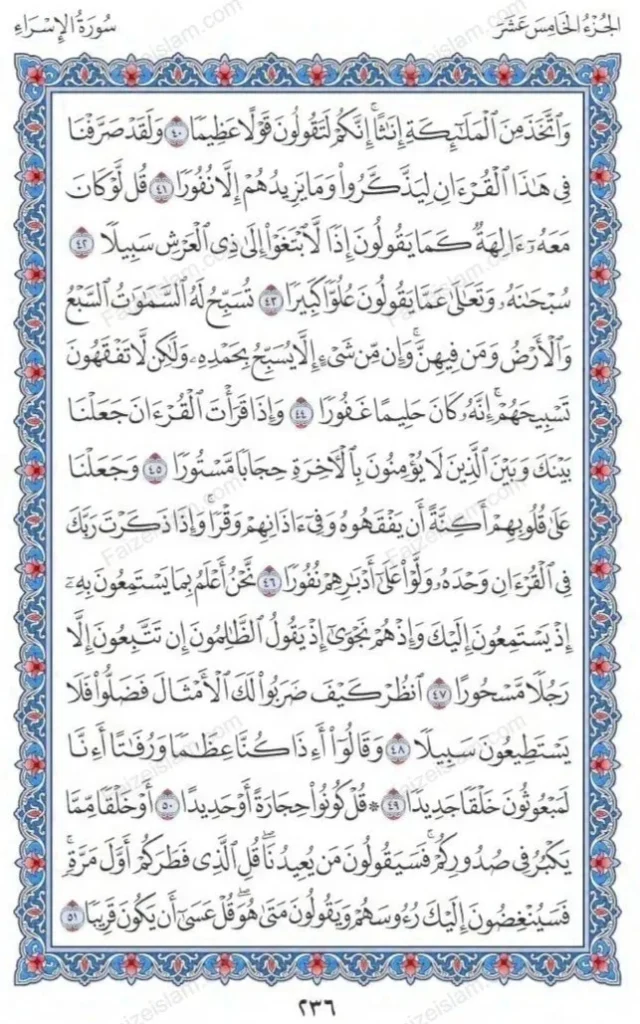 الجُزْءُ الخَامِسَ عَشَرَ
سُورَةُ الإِسْرَاءِ
وَٱتَّخَذَ مِنَ ٱلْمَلَٰٓئِكَةِ إِنَٰثًاۚ إِنَّكُمْ لَتَقُولُونَ قَوْلًا عَظِيمًا ٤٠ وَلَقَدْ صَرَّفْنَا
فِى هَٰذَا ٱلْقُرْءَانِ لِيَذَّكَّرُوا۟ وَمَا يَزِيدُهُمْ إِلَّا نُفُورًا ٤١ قُل لَّوْ كَانَ
مَعَهُۥٓ ءَالِهَةٌ كَمَا يَقُولُونَ إِذًا لَّٱبْتَغَوْا۟ إِلَىٰ ذِى ٱلْعَرْشِ سَبِيلًا ٤٢
سُبْحَٰنَهُۥ وَتَعَٰلَىٰ عَمَّا يَقُولُونَ عُلُوًّا كَبِيرًا ٤٣ تُسَبِّحُ لَهُ ٱلسَّمَٰوَٰتُ ٱلسَّبْعُ
وَٱلْأَرْضُ وَمَن فِيهِنَّۚ وَإِن مِّن شَىْءٍ إِلَّا يُسَبِّحُ بِحَمْدِهِۦ وَلَٰكِن لَّا تَفْقَهُونَ
تَسْبِيحَهُمْۗ إِنَّهُۥ كَانَ حَلِيمًا غَفُورًا ٤٤ وَإِذَا قَرَأْتَ ٱلْقُرْءَانَ جَعَلْنَا
بَيْنَكَ وَبَيْنَ ٱلَّذِينَ لَا يُؤْمِنُونَ بِٱلْءَاخِرَةِ حِجَابًا مَّسْتُورًا ٤٥ وَجَعَلْنَا
عَلَىٰ قُلُوبِهِمْ أَكِنَّةً أَن يَفْقَهُوهُ وَفِىٓ ءَاذَانِهِمْ وَقْرًاۚ وَإِذَا ذَكَرْتَ رَبَّكَ
فِى ٱلْقُرْءَانِ وَحْدَهُۥ وَلَّوْا۟ عَلَىٰٓ أَدْبَٰرِهِمْ نُفُورًا ٤٦ نَّحْنُ أَعْلَمُ بِمَا يَسْتَمِعُونَ بِهِۦٓ
إِذْ يَسْتَمِعُونَ إِلَيْكَ وَإِذْ هُمْ نَجْوَىٰٓ إِذْ يَقُولُ ٱلظَّٰلِمُونَ إِن تَتَّبِعُونَ إِلَّا
رَجُلًا مَّسْحُورًا ٤٧ ٱنظُرْ كَيْفَ ضَرَبُوا۟ لَكَ ٱلْأَمْثَالَ فَضَلُّوا۟ فَلَا
يَسْتَطِيعُونَ سَبِيلًا ٤٨ وَقَالُوٓا۟ أَءِذَا كُنَّا عِظَٰمًا وَرُفَٰتًا أَءِنَّا
لَمَبْعُوثُونَ خَلْقًا جَدِيدًا ٤٩ ۞ قُلْ كُونُوا۟ حِجَارَةً أَوْ حَدِيدًا ٥٠ أَوْ خَلْقًا مِّمَّا
يَكْبُرُ فِى صُدُورِكُمْۚ فَسَيَقُولُونَ مَن يُعِيدُنَاۖ قُلِ ٱلَّذِى فَطَرَكُمْ أَوَّلَ مَرَّةٍۚ
فَسَيُنْغِضُونَ إِلَيْكَ رُءُوسَهُمْ وَيَقُولُونَ مَتَىٰ هُوَۖ قُلْ عَسَىٰٓ أَن يَكُونَ قَرِيبًا ٥١
٢٣٦
Faizeislam.com